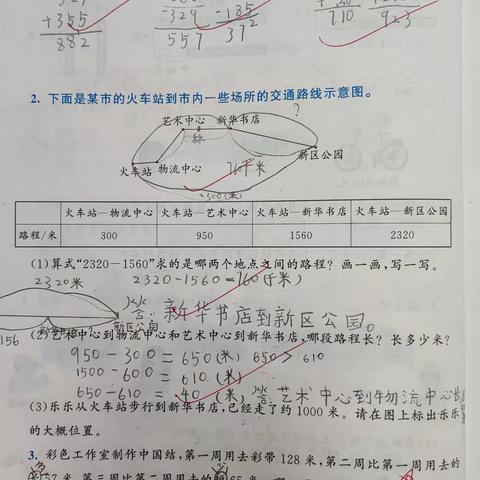 527
+355
882
329
557
-185
372
710
923
2. 下面是某市的火车站到市内一些场所的交通路线示意图。
?
艺术中心 新华书店
乐乐
新区公园
火车站 物流中心 760千米
2300(米)
火车站—物流中心 火车站—艺术中心 火车站—新华书店 火车站—新区公园
路程/米 300 950 1560 2320
(1)算式“2320-1560”求的是哪两个地点之间的路程？画一画,写一写。
2320米 2320-1560=760(千米)
答:新华书店到新区公园。
新华书店 新区公园
156
(2)艺术中心到物流中心和艺术中心到新华书店,哪段路程长？长多少米？
950-300=650(米) 650>610
1500-600=610(米)
650-610=40(米) 答:艺术中心到物流中心长
(3)乐乐从火车站步行到新华书店,已经走了约1000米。请在图上标出乐乐
的大概位置。
3. 彩色工作室制作中国结,第一周用去彩带128米,第二周比第一周用去的
多57米,第三周比第二周用去的少65米。